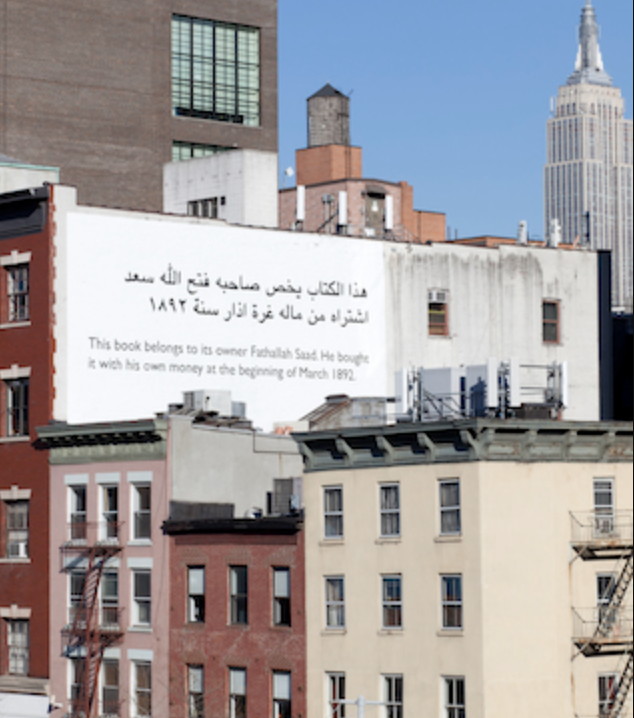 هذا الكتاب يخص صاحبه فتح الله سعد
اشتراه من ماله غرة اذار سنة ١٨٩٢
This book belongs to its owner Fathallah Saad. He bought
it with his own money at the beginning of March 1892.